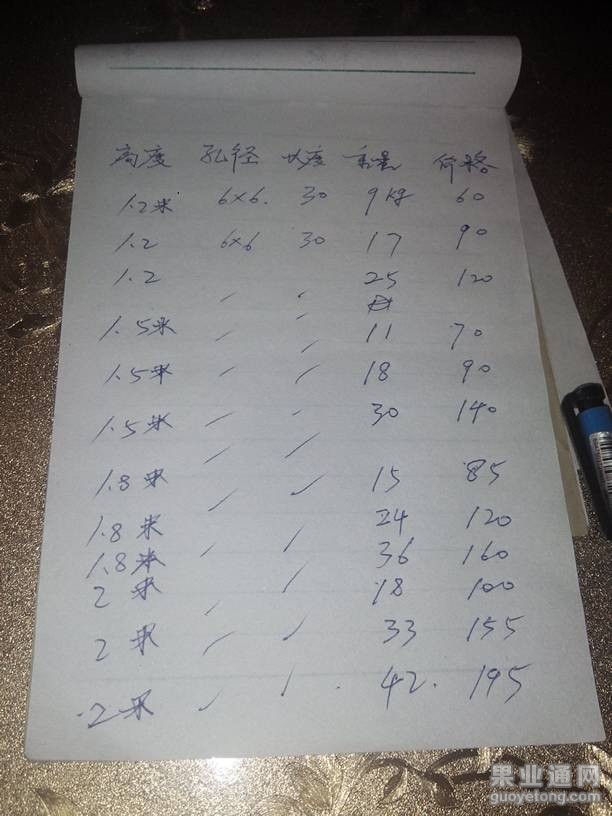 高度 孔径 长度 重量 价格
1.2米 6×6. 30 9kg 60
1.2 6×6 30 17 90
1.2 25 120
1.5米 11 70
1.5米 18 90
1.5米 30 140
1.8米 15 85
1.8米 24 120
1.8米 36 160
2米 18 100
2米 33 155
2米 42. 195
果业通网
guoyetong.com